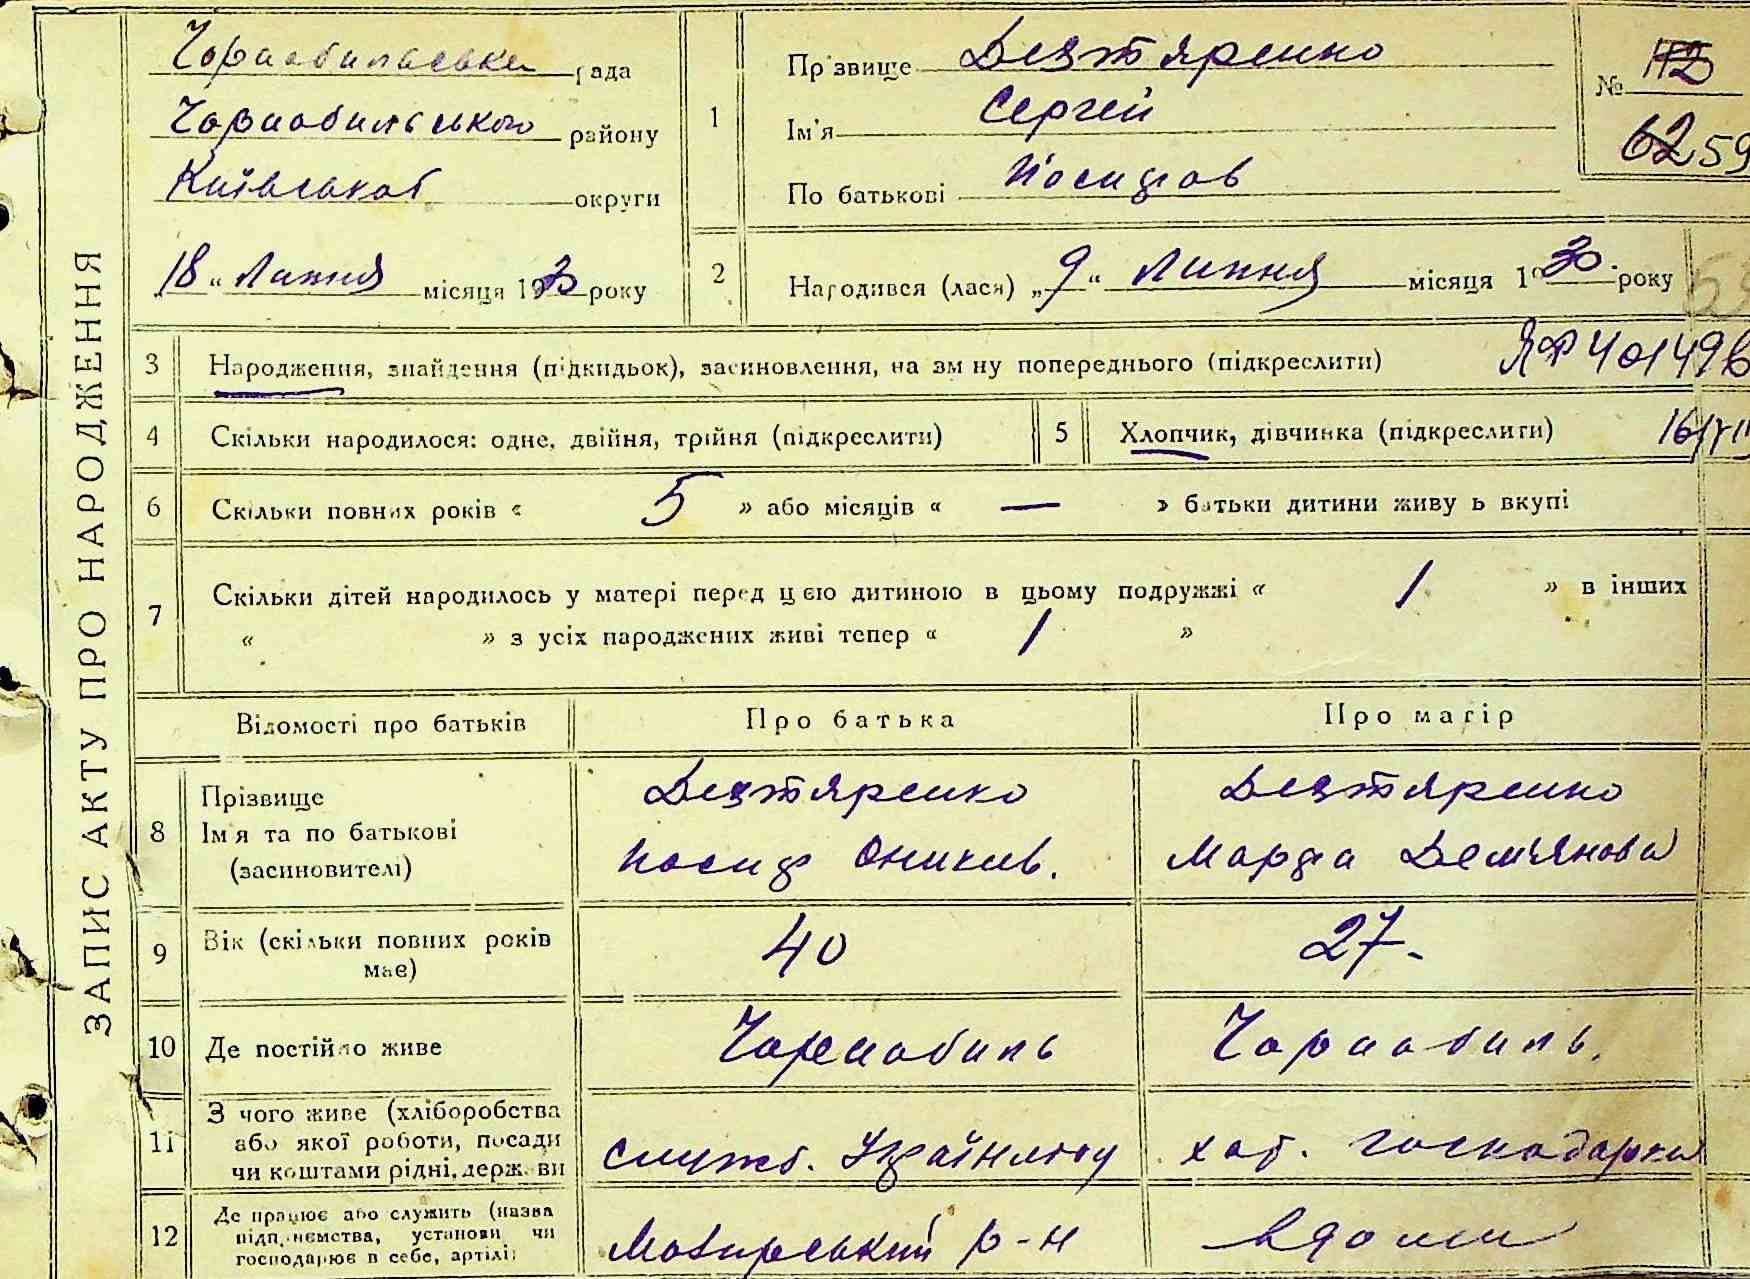 ЗАПИС АКТУ ПРО НАРОДЖЕННЯ
Чорнобильська рада
Чорнобильського району
Київської округи
18 " Липня місяця 1930 року
1
Прізвище Дегтяренко
Ім'я Сергей
По батькові Йосипов
№ 112
62 59
2
Народився (лася) „ 9 " Липня місяця 1930 року
59
3 Народження, знайдення (підкидьок), засиновлення, на зміну попереднього (підкреслити)
ЯФ 401496
4 Скільки народилося: одне, двійня, трійня (підкреслити)
5 Хлопчик, дівчинка (підкреслити)
6 Скільки повних років « 5 » або місяців « — » батьки дитини живуть вкупі
7 Скільки дітей народилось у матері перед цією дитиною в цьому подружжі « 1 » в інших
« » з усіх народжених живі тепер « 1 »
Відомості про батьків Про батька Про матір
8 Прізвище
Ім'я та по батькові
(засиновителі)
Дегтяренко
Йосип Оникиєв.
Дегтяренко
Марфа Дем'янова
9 Вік (скільки повних років має) 40 27-
10 Де постійно живе Чорнобиль Чорнобиль.
11 З чого живе (хліборобства або якої роботи, посади чи коштами рідні, держави
служб. хат. господарка
12 Де працює або служить (назва підприємства, установи чи господарює в себе, артілі)
р-н вдома